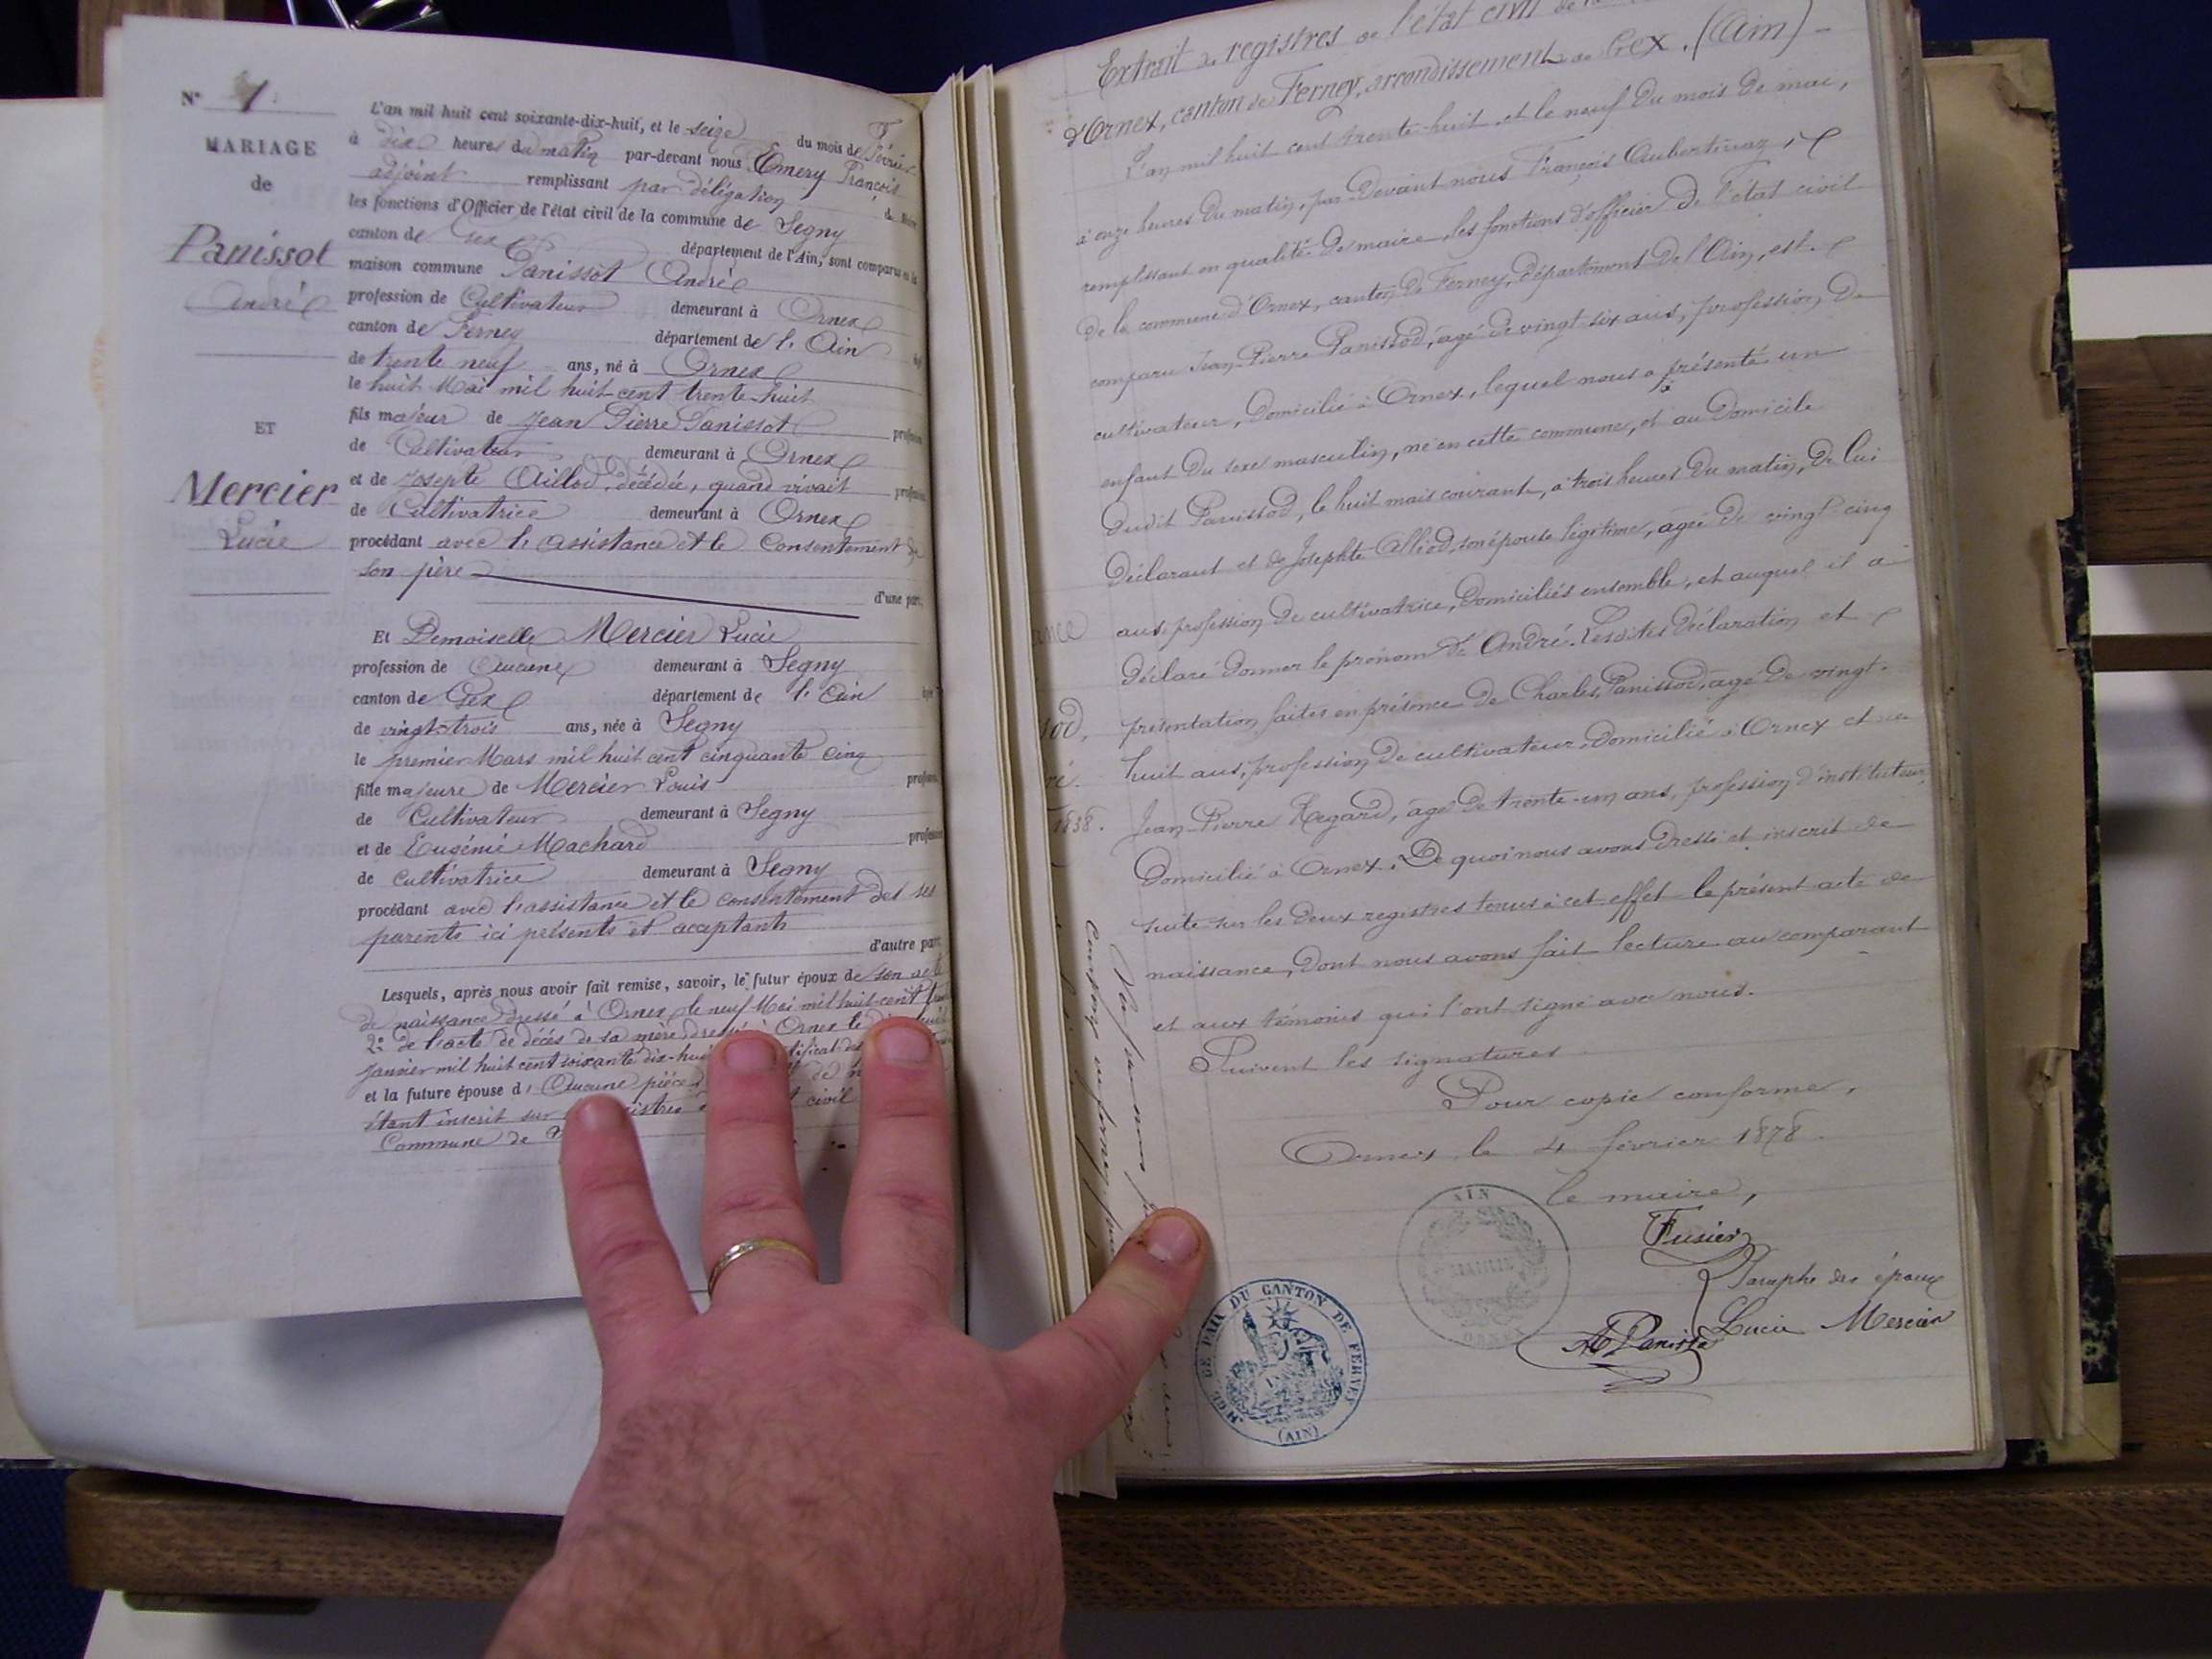 N° 1
MARIAGE
de
Panissot
André
ET
Mercier
Lucie
L'an mil huit cent soixante-dix-huit, et le seize du mois de Février
à dix heures du matin par-devant nous Emery François
adjoint remplissant par délégation
les fonctions d'Officier de l'état civil de la commune de Segny
canton de Gex département de l'Ain, sont comparus en la
maison commune Panissot André
profession de Cultivateur demeurant à Ornex
canton de Ferney département de l'Ain
de trente neuf ans, né à Ornex
le huit Mai mil huit cent trente-huit
fils majeur de Jean Pierre Panissot profession
de Cultivateur demeurant à Ornex
et de Josepte Aillod, décédée, quand vivait
de Cultivatrice demeurant à Ornex
procédant avec l'assistance et le Consentement de
son père
d'une part,
Et Demoiselle Mercier Lucie
profession de Aucune demeurant à Segny
canton de Gex département de l'Ain
de vingt-trois ans, née à Segny
le premier Mars mil huit cent cinquante cinq
fille majeure de Mercier Louis profession
de Cultivateur demeurant à Segny
et de Eugénie Machard profession
de Cultivatrice demeurant à Segny
procédant avec l'assistance et le consentement des ses
parents ici présents et acceptants
d'autre part
Lesquels, après nous avoir fait remise, savoir, le futur époux de son acte
de naissance dressé à Ornex le neuf Mai mil huit-cent
2° de l'acte de décès de sa mère Ornex le
janvier mil huit cent soixante dix-huit
et la future épouse d' Aucune pièce
étant inscrit sur civil
Commune de
Extrait de registres de l'état civil de la
d'Ornex, canton de Ferney, arrondissement de Gex. (Ain) -
L'an mil huit cent trente-huit, et le neuf du mois de mai,
à onze heures du matin, par-devant nous François
remplissant en qualité de maire, les fonctions d'officier de l'état civil
de la commune d'Ornex, canton de Ferney, département de l'Ain, est
comparu Jean-Pierre Panissod, âgé de vingt-six ans, profession de
cultivateur, domicilié à Ornex, lequel nous a présenté un
enfant du sexe masculin, né en cette commune, et au domicile
dudit Panissod, le huit mais courant, à trois heures du matin, de lui
déclarant et de Josephte Alliod, son épouse légitime, âgée de vingt cinq
ans, profession de cultivatrice, domiciliés ensemble, et auquel il a
déclaré donner le prénom d' André. Lesdites déclaration et
présentation faites en présence de Charles Panissod, âgé de vingt-
huit ans, profession de cultivateur domicilié à Ornex et
Jean Pierre Regard, âgé de trente-un ans, profession d'instituteur,
domicilié à Ornex. De quoi nous avons dressé et inscrit de
suite sur les deux registres tenus à cet effet le présent acte de
naissance, dont nous avons fait lecture au comparant
et aux témoins qui l'ont signé avec nous.
Suivent les signatures
Pour copie conforme,
Ornex, le 4 février 1878.
Le maire,
Fusier
Paraphe des époux
Lucie Mercier
A Panissod
1838.
AIN
MAIRIE
ORNEX
DE PAIX DU CANTON DE FERNEY
(AIN)